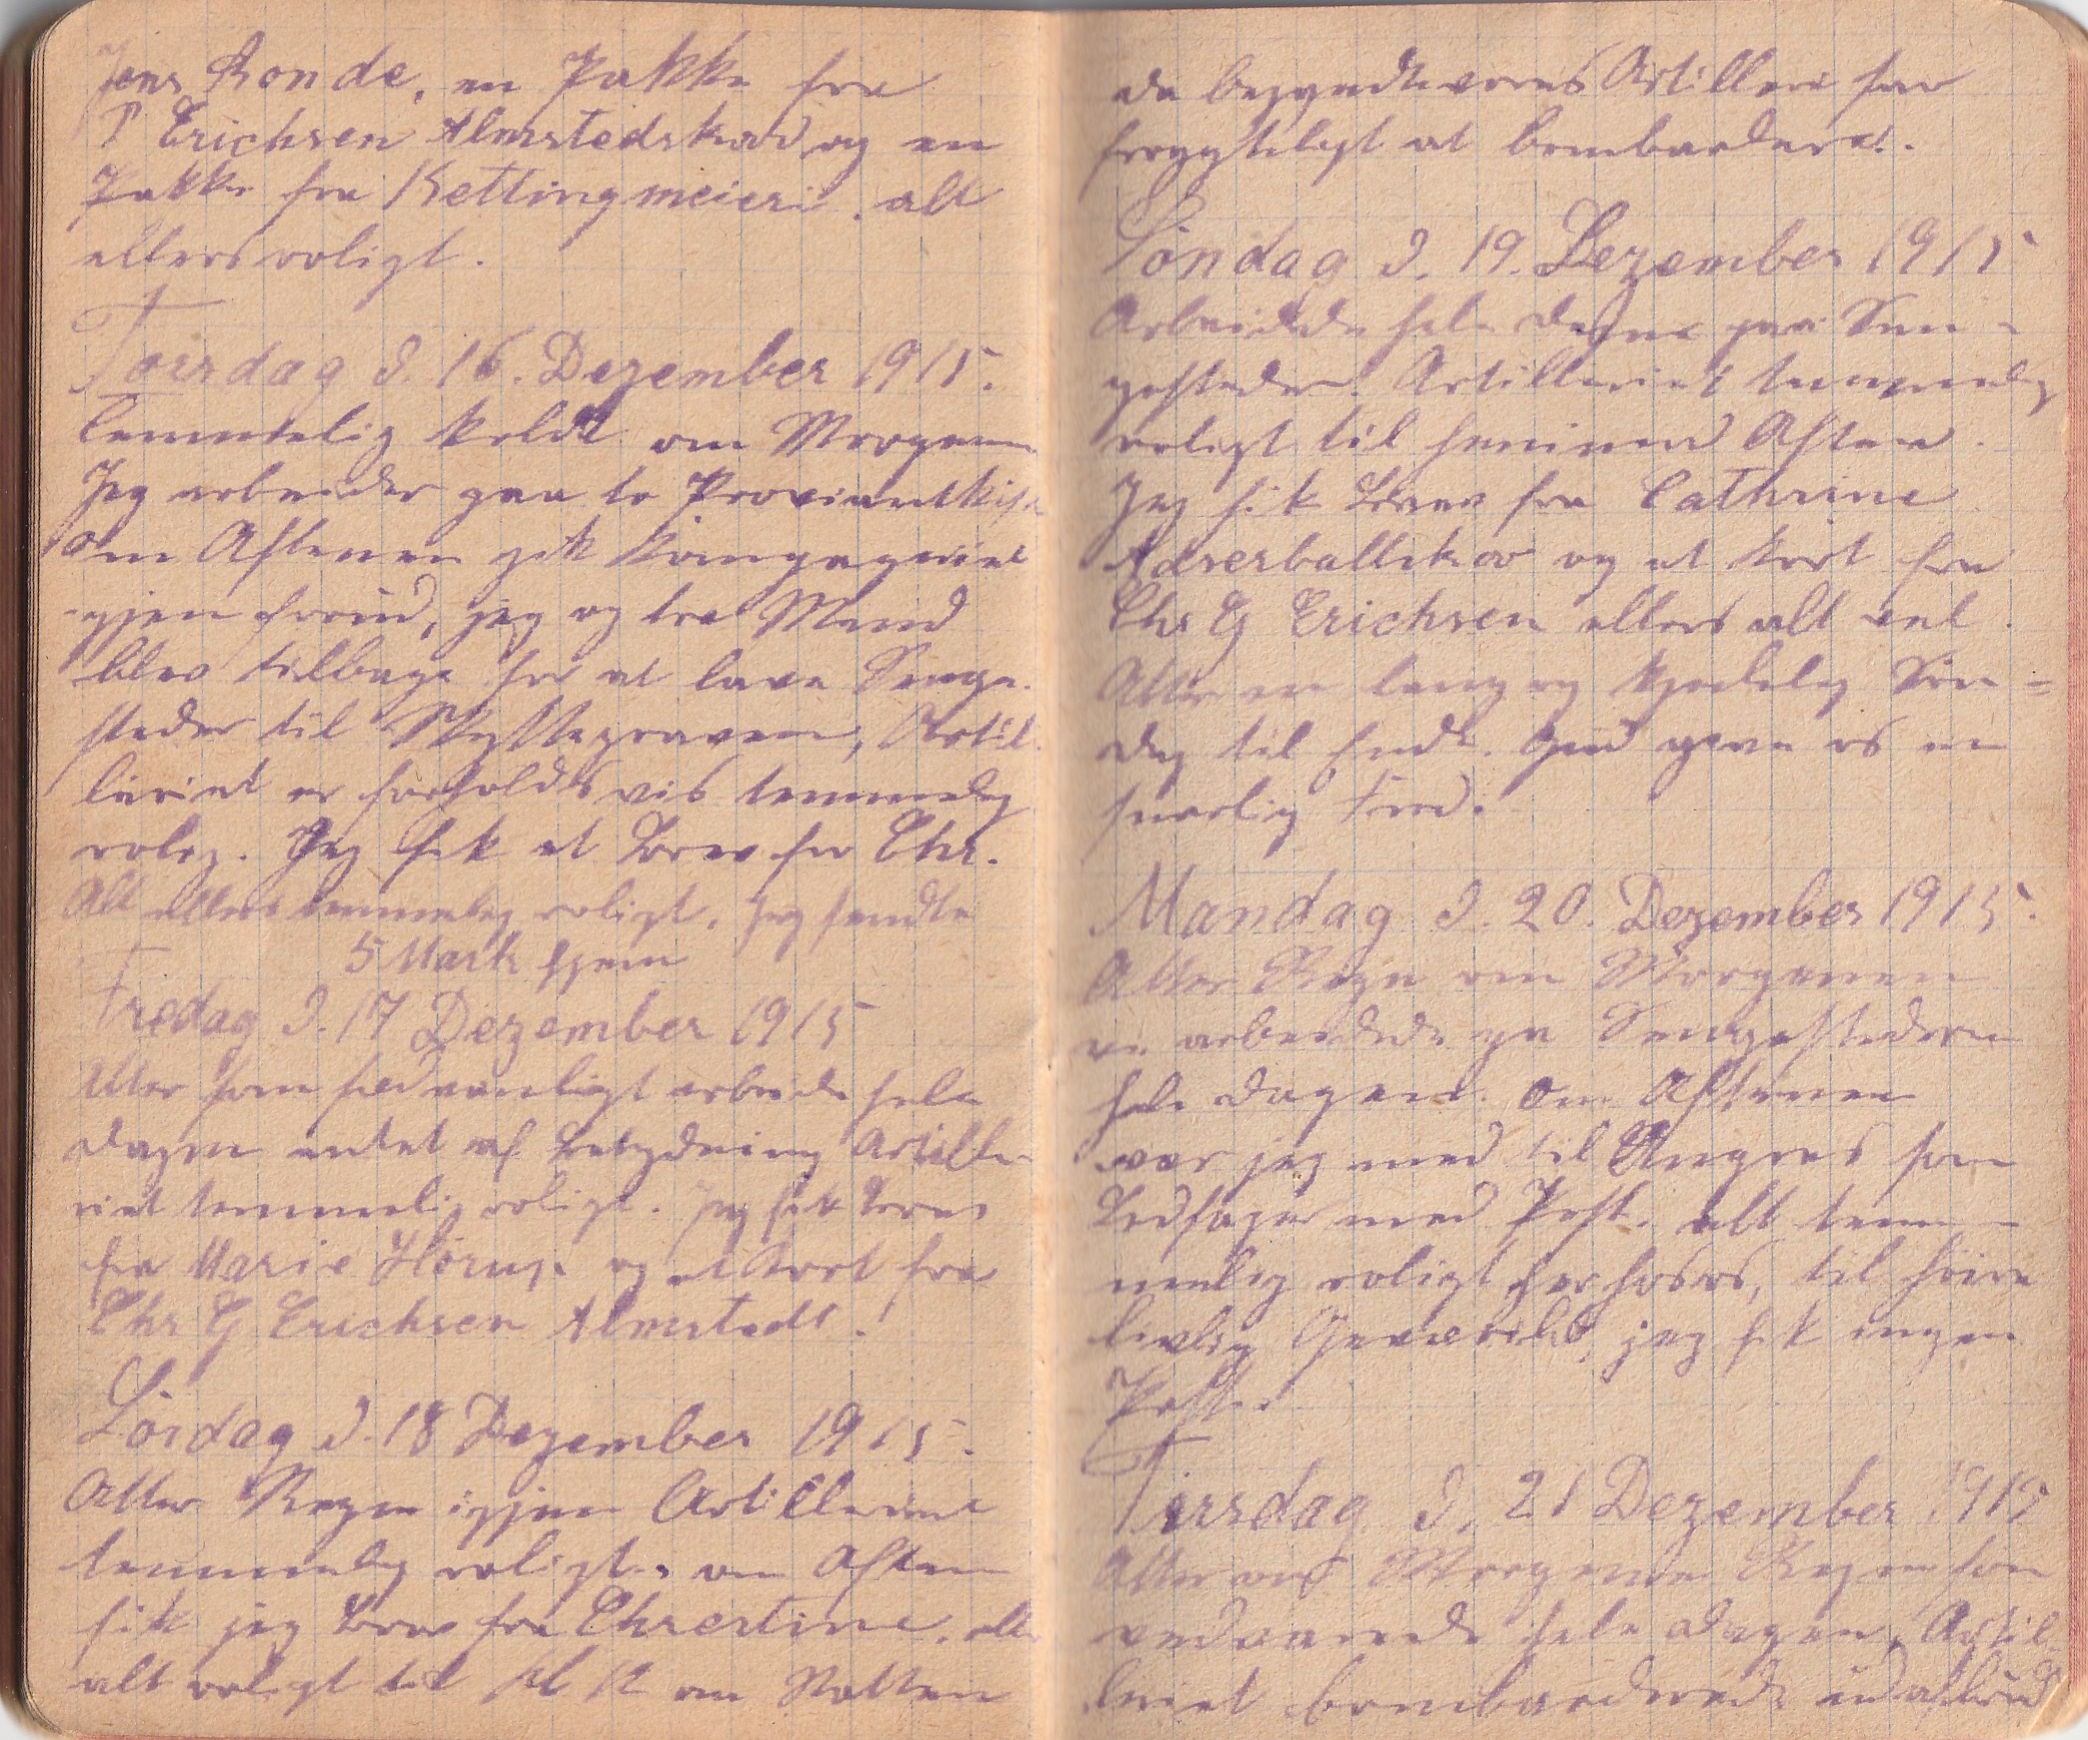 Jens Bonde, en Pakke fra
P Erichsen Almstedskov og en
Pakke fra Kettingmeieri. alt
ellers roligt.
Torsdag d. 16. Dezember 1915.
Temmelig koldt om Morgenen
Jeg arbeider paa to Proviantkis
om Aftenen gik Kompagniet
igjen frem, jeg og tre Mand
blev tilbage for at lave Senge-
steder til Skyttegraven, Artil-
leriet er forholdsvis temmelig
rolig. Jeg fik et Brev fra Chr.
Alt ellers temmelig roligt. Jeg sendte
5 Mark hjem
Fredag d. 17 Dezember 1915
Atter som sædvanligt arbeide hele
Dagen intet af Betydning Artille-
riet temmelig roligt. Jeg fik Brev
fra Marie Hörup og et Kort fra
Chr G Erichsen Almstedt.
Lördag d. 18 Dezember 1915.
Atter Regn igjen Artilleriet
temmelig roligt. om Aften
fik jeg Brev fra Chrestine. ellers
alt roligt til Kl 12 om Natten
da begyndte vores Artilleri saa
frygteligt at bombardere.
Söndag d. 19. Dezember 1915
Arbeidede hele Dagen paa Sen-
gesteder. Artilleriet temmelig
roligt til henimod Aften.
Jeg fik Brev fra Cathrine
Adserballskov og et Kort fra
Chr G Erichsen ellers alt vel.
Atter en lang og kjedelig Sön-
dag til Ende. Gud give os en
snarlig Fred.
Mandag d. 20. Dezember 1915.
Atter Regn om Morgenen
vi arbeidede paa Sengestederne
hele Dagen. Om Aftenen
var jeg med til Angres som
Ledsager med Post. alt tem-
melig roligt her hos os, til höire
livlig Geværild, jeg fik ingen
Post.
Tirsdag d. 21 Dezember 1915
Atter om Morgenen Regn som
vedvarede hele Dagen, Artil-
leriet bombarderede uafbrud